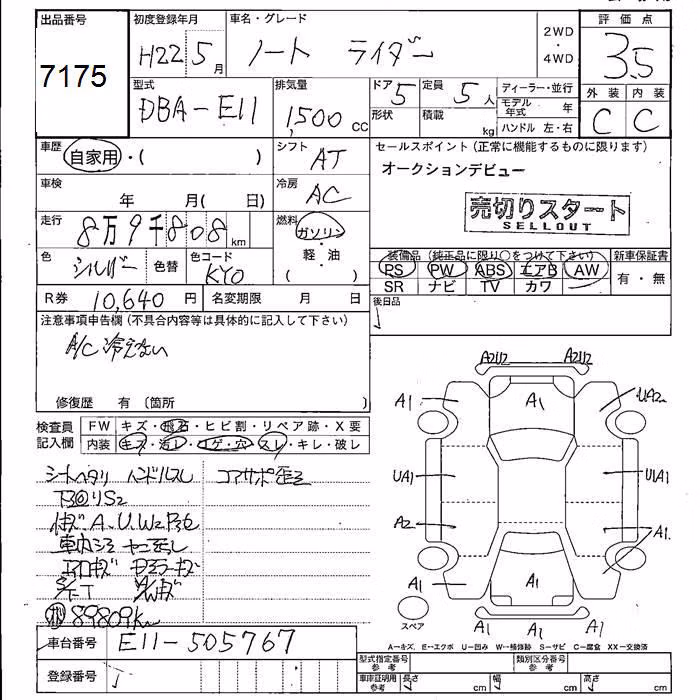 出品番号
7175
初度登録年月
H22 5月
車名・グレード
ノート ライダー
2WD
・
4WD
評価点
3.5
外装 内装
C C
型式
DBA-E11
排気量
1,500 CC
ドア 5
形状
定員 5人
積載 kg
ディーラー・並行
モデル年式 年
ハンドル 左・右
車歴
自家用・( )
シフト
AT
セールスポイント(正常に機能するものに限ります)
オークションデビュー
売切りスタート
SELLOUT
車検
年 月( 日)
冷房
AC
走行
8万9千808km
燃料
ガソリン
・
軽・油
( )
色
シルバー
色替
色コード
KY0
装備品(純正品に限り○をつけて下さい)
PS PW ABS エアB AW
SR ナビ TV カワ
新車保証書
有・無
R券 10,640円
名変期限 月 日
後日品
注意事項申告欄(不具合内容等は具体的に記入して下さい)
A/C冷えない
修復歴 有〔箇所 〕
検査員
記入欄
FW キズ・飛石・ヒビ割・リペア跡・X要
内装 キズ・汚レ・コゲ・穴・スレ・キレ・破レ
シートヘタリ ハンドルスレ
コアサポ歪
キズ・A.U.W2
エアロキズ
89809Km
車台番号 E11-505767
登録番号
A2U2 A2U2
A1 A1 UA2
UA1 UA1
A2 A1.
A1 A1
スペア
A1 A1 A1
A…キズ, E…エクボ U…凹み W…補修跡 S…サビ C…腐食 XX…交換済
型式指定番号
参考
類別区分番号
参考
車庫証明用
参考
長さ cm 幅 cm 高さ cm